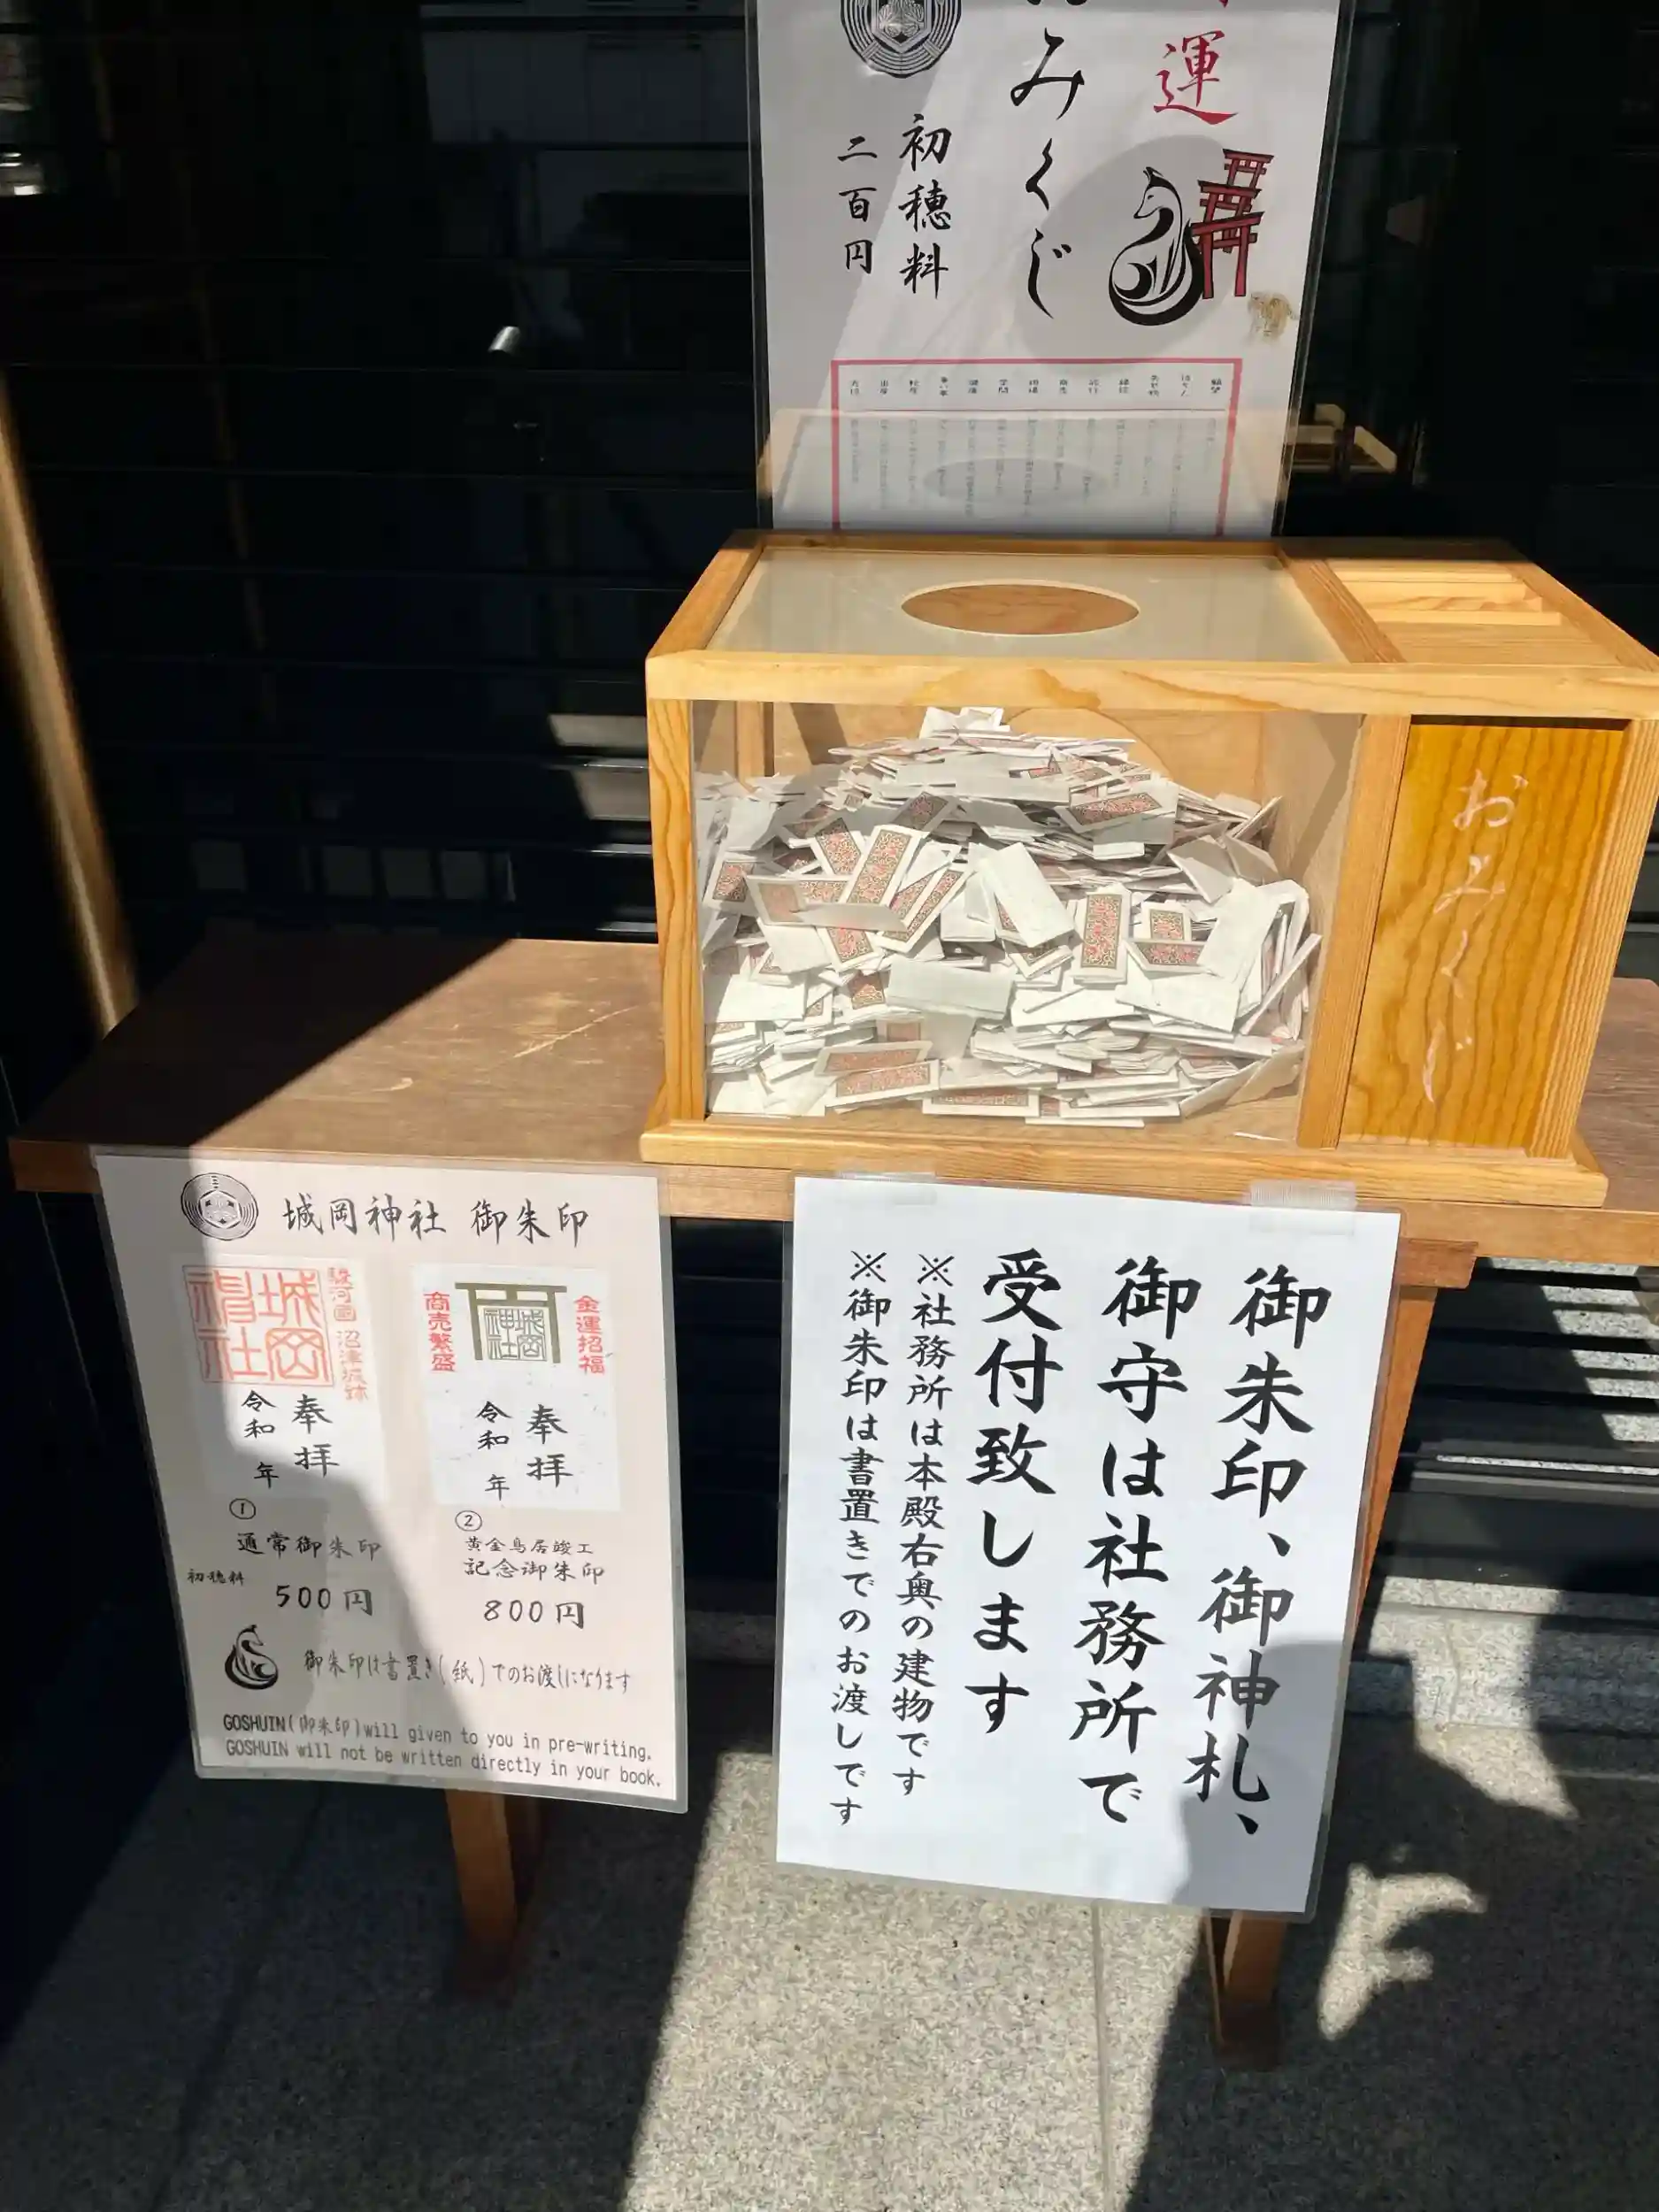 運
みくじ
初穂料
二百円
おみくじ
城岡神社 御朱印
駿河國 沼津城跡
城岡
神社
奉拝
令和 年
①
通常御朱印
初穂料
500円
金運招福
城岡
神社
商売繁盛
奉拝
令和 年
②
黄金鳥居竣工
記念御朱印
800円
御朱印は書置き(紙)でのお渡しになります
GOSHUIN(御朱印)will given to you in pre-writing.
GOSHUIN will not be written directly in your book.
御朱印、御神札、
御守は社務所で
受付致します
※社務所は本殿右奥の建物です
※御朱印は書置きでのお渡しです